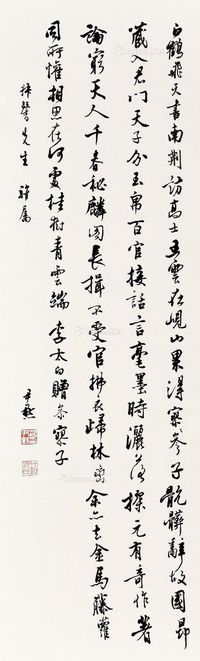 白鶴飛天書南荆訪高士五雲在峴山果得寥参子骯髒辭故國昂
藏入君門天子分玉帛百官接話言毫墨時灑落探元有奇作著
論窮天人千春秘麟閣長揖不受官拂衣歸林巒余亦去金馬藤蘿
同所懽相思在何處桂樹青雲端 李太白贈参寥子
馨先生雅屬
尹默